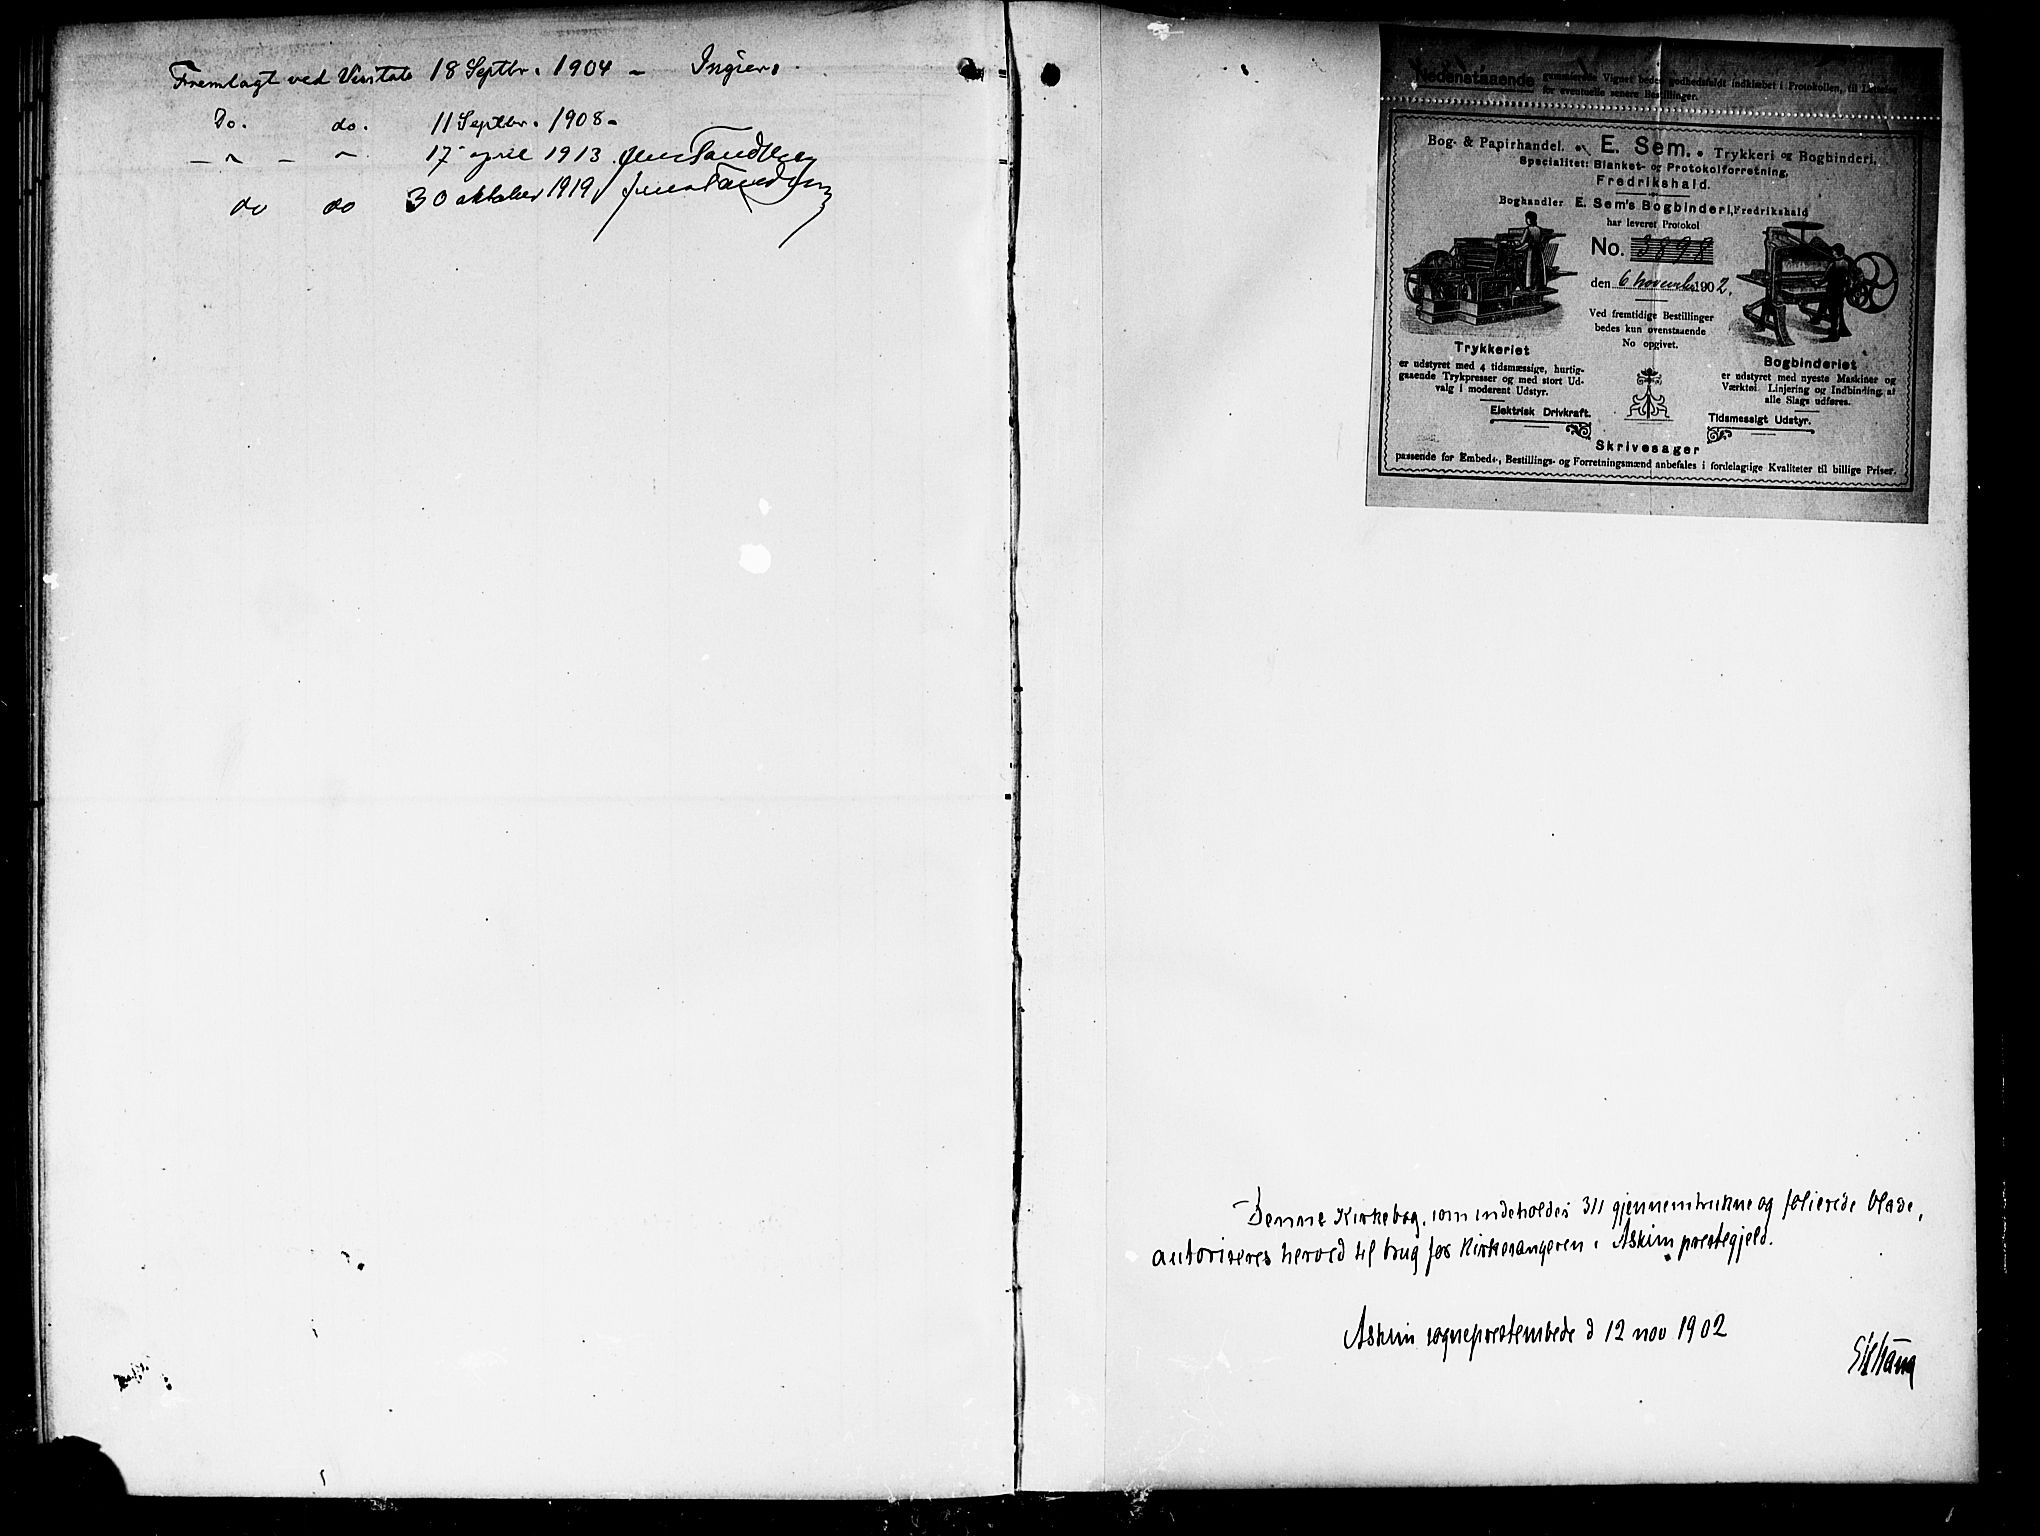 Fremlagt ved Visitats 18 Septbr. 1904 – Ingier.
Do. do. 11 Septbr. 1908 –
– " – " 17 april 1913. Jens Tandberg
do do 30 oktober 1919 Jens Tandberg
Nedenstaaende gummierede Vignet bedes godhedsfuldt indklæbet i Protokollen, til Lettelse
for eventuelle senere Bestillinger.
Bog- & Papirhandel. • E. Sem. • Trykkeri og Bogbinderi.
Specialitet: Blanket- og Protokolforretning,
Fredrikshald.
Boghandler E. Sem's Bogbinderi, Fredrikshald
har leveret Protokol
No. 3898
den 6 november 1902.
Ved fremtidige Bestillinger
bedes kun ovenstaaende
No opgivet.
Trykkeriet
er udstyret med 4 tidsmæssige, hurtig-
gaaende Trykpresser og med stort Ud-
valg i moderent Udstyr.
Elektrisk Drivkraft.
Bogbinderiet
er udstyret med nyeste Maskiner og
Værktøi. Linjering og Indbinding af
alle Slags udføres.
Tidsmessigt Udstyr.
Skrivesager
passende for Embeds-, Bestillings- og Forretningsmænd anbefales i fordelagtige Kvaliteter til billige Priser.
Denne Kirkebog, som indeholder 311 gjennemtrukne og folierede blade,
autoriseres herved til brug for Kirkesangeren i Askim prestegjeld.
Askim sogneprestembede d 12 nov 1902